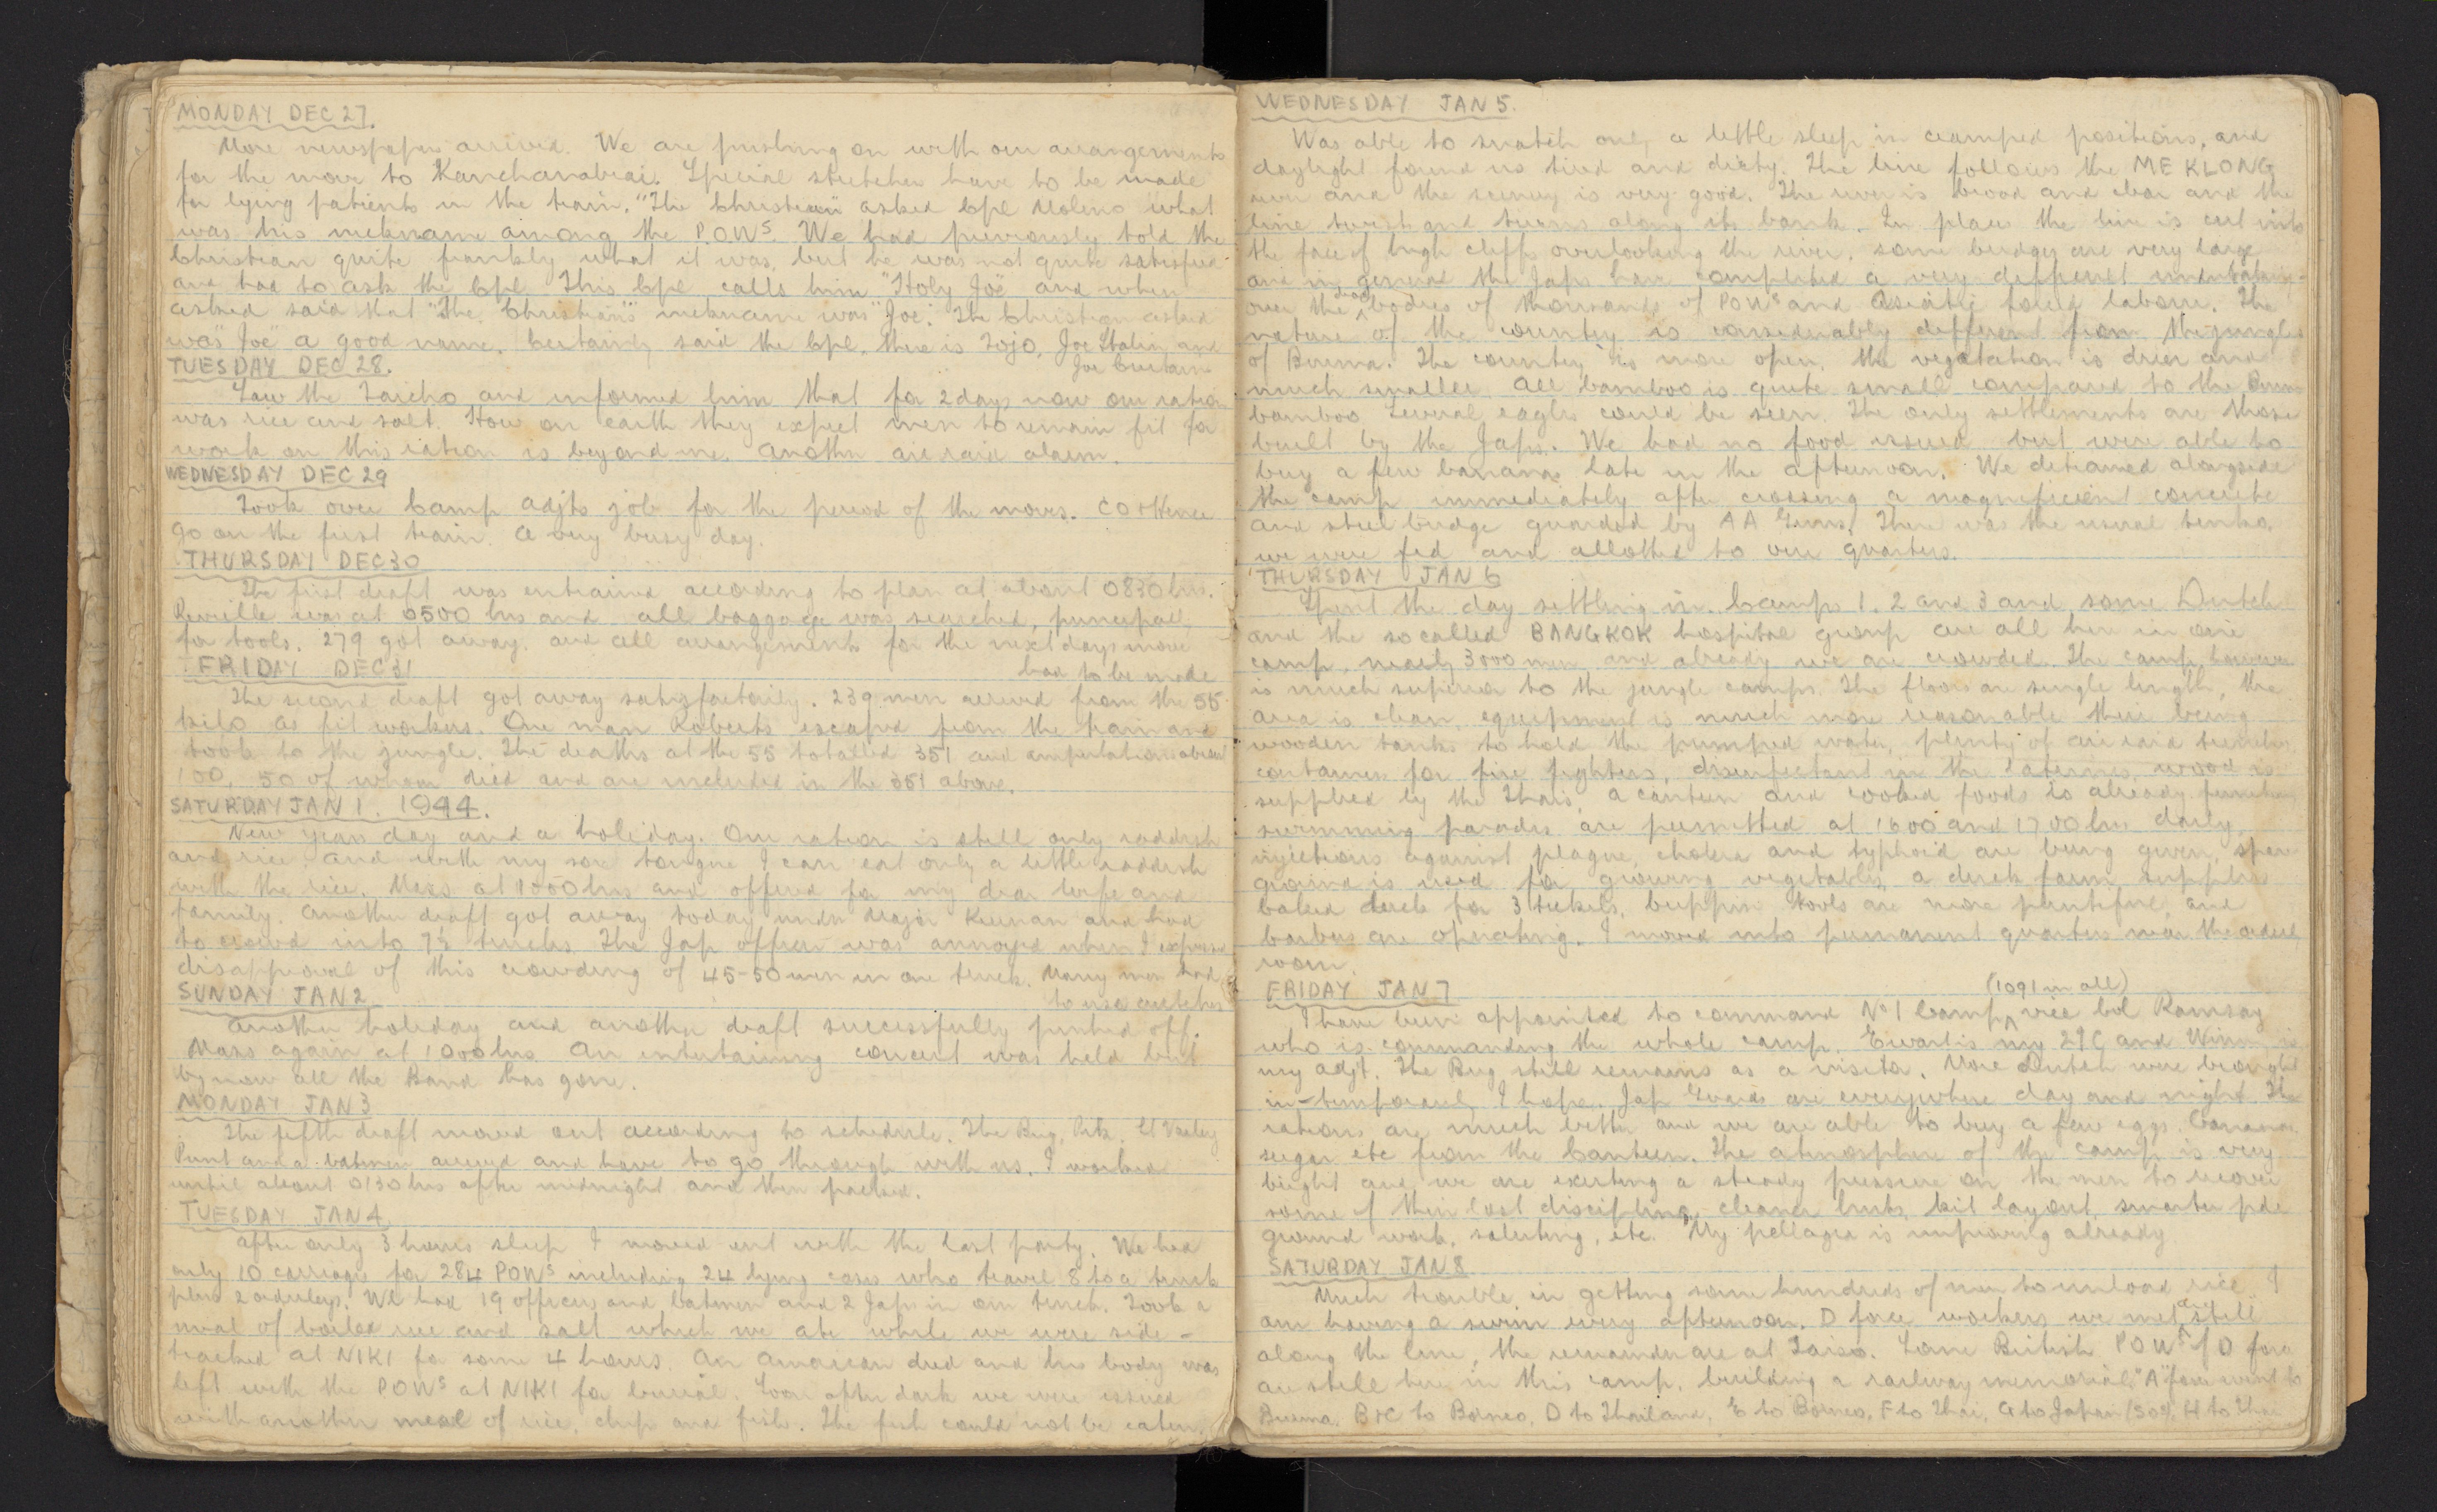 MONDAY DEC 27.
More newspapers arrived. We are pushing on with our arrangements
for the move to Kanchanabrai. Special stretchers have to be made
for lying patients in the train. "The Christian" asked Cpl Moleno what
was his nickname among the P.O.Ws. We had previously told the
Christian quite frankly what it was, but he was not quite satisfied
and had to ask the Cpl. This Cpl calls him "Holy Joe" and when
asked said that "The Christian's" nickname was "Joe". The Christian asked
was "Joe" a good name. Certainly said the Cpl, there is Tojo, Joe Stalin and
Joe Curtain.
TUESDAY DEC 28.
Saw the Taicho and informed him that for 2 days now our ration
was rice and salt. How on earth they expect men to remain fit for
work on this ration is beyond me. Another air raid alarm.
WEDNESDAY DEC 29
Took over Camp Adjts job for the period of the moves. CO + Hence
go on the first train. A very busy day.
THURSDAY DEC 30
The first draft was entrained according to plan at about 0830 hrs.
Reveille was at 0500 hrs and all baggage was searched, principally
for tools. 279 got away. and all arrangements for the next days move
had to be made
FRIDAY DEC 31
The second draft got away satisfactorily. 239 men arrived from the 55
kilo as fit workers. One man Roberts escaped from the train and
took to the jungle. The deaths at the 55 totalled 351 and amputations about
100, 50 of whom died and are included in the 351 above.
SATURDAY JAN 1. 1944.
New years day and a holiday. Our ration is still only raddish
and rice and with my sore tongue I can eat only a little raddish
with the rice. Mass at 1000 hrs and offered for my dear wife and
family. Another draft got away today under Major Keenan and had
to crowd into 7½ trucks. The Jap officer was annoyed when I expressed
disapproval of this crowding of 45-50 men in one truck. Many men had
to use crutches
SUNDAY JAN 2
Another holiday and another draft successfully pushed off.
Mass again at 1000 hrs. An entertaining concert was held but
by now all the Band has gone.
MONDAY JAN 3
The fifth draft moved out according to schedule. The Bug, Lt Varley
and a batman arrived and have to go through with us. I worked
until about 0130 hrs after midnight and then packed.
TUESDAY JAN 4
After only 3 hours sleep I moved out with the last party. We had
only 10 carriages for 284 POWs including 24 lying cases who travel 8 to a truck
plus 2 orderlys. We had 19 officers and batmen and 2 Japs in our truck. Took a
meal of boiled rice and salt which we ate while we were side-
tracked at NIKI for some 4 hours. An American died and his body was
left with the POWs at NIKI for burial. Soon after dark we were issued
with another meal of rice, chip and fish. The fish could not be eaten.
WEDNESDAY JAN 5.
Was able to snatch only a little sleep in cramped positions, and
daylight found us tired and dirty. The line follows the ME KLONG
river and the scenery is very good. The river is broad and clear and the
line twists and turns along its bank. In places the line is cut into
the face of high cliffs overlooking the river. some bridges are very large
and in general the Japs have completed a very different undertaking -
over the dead bodies of thousands of POWs and Asiatic forced labour. The
nature of the country is considerably different from the jungles
of Burma. The country is more open, the vegetation is drier and
much smaller. All bamboo is quite small compared to the Burma
bamboo. Several eagles could be seen. The only settlements are those
built by the Japs. We had no food issued but were able to
buy a few bananas late in the afternoon. We detrained alongside
the camp immediately after crossing a magnificient concrete
and steel bridge guarded by AA Guns. There was the usual tenko.
we were fed and allotted to our quarters.
THURSDAY JAN 6
Spent the day settling in. Camps 1, 2 and 3 and some Dutch
and the so called BANGKOK hospital group are all here in one
camp, nearly 3000 men and already we are crowded. The camp however
is much superior to the jungle camps. The floors are single length, the
area is clean, equipment is much more reasonable there being
wooden tanks to hold the pumped water, plenty of air raid trenches
containers for fire fighters, disinfectant in the latrines, wood is
supplied by the Thais, a canteen and cooked foods is already
swimming parades are permitted at 1600 and 1700 hrs daily,
injections against plague, cholera and typhoid are being given, spare
ground is used for growing vegetables, a duck farm supplies
baked duck for 3 tickals, tools are more plentiful, and
barbers are operating. I moved into permanent quarters near the orderly
room.
FRIDAY JAN 7
(1091 in all)
I have been appointed to command No 1 Camp vice Col Ramsay
who is commanding the whole camp. Ewart is my 2IC and Winn is
my adjt. The Bug still remains as a visitor. More Dutch were brought
in - temporarily I hope. Jap Guards are everywhere day and night. The
rations are much better and we are able to buy a few eggs, bananas
sugar etc from the Canteen. The atmosphere of the camp is very
bright and we are exerting a steady pressure on the men to recover
some of their lost discipline, - cleaner huts, kit layout, smarter pde
ground work, saluting, etc. My pellagra is improving already
SATURDAY JAN 8
Much trouble in getting some hundreds of men to unload rice. I
am having a swim every afternoon. D force workers we met are still
along the line, the remainder are at Taiso. Some British POWs of D force
are still here in this camp, building a railway memorial. "A" force went to
Burma. B+C to Borneo, D to Thailand, E to Borneo, F to Thai, G to Japan (300), H to Thai